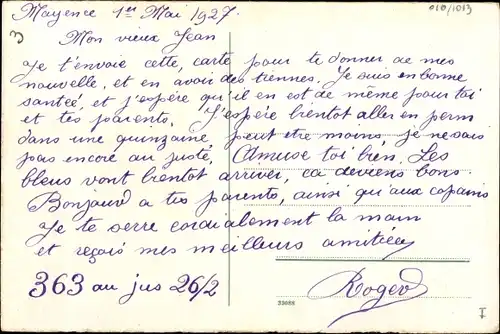 Mayence 1er Mai 1927.
010/1013
3
Mon vieux Jean
Je t'envoie cette, carte pour te donner de mes
nouvelle, et en avoir des tiennes. Je suis en bonne
santée, et j'espére qu'il en est de même pour toi
et tes parents. J'espére bientot aller en perm
dans une quinzaine, peut etre moins, je ne sais
pas encore au juste. Amuse toi bien. Les
bleus vont bientot arriver, ca deviens bons
Bonjour a tes parents, ainsi qu'aux copains
Je te serre cordialement la main
et reçois mes meilleurs amitiées
363 au jus 26/2
Roger
33088
I